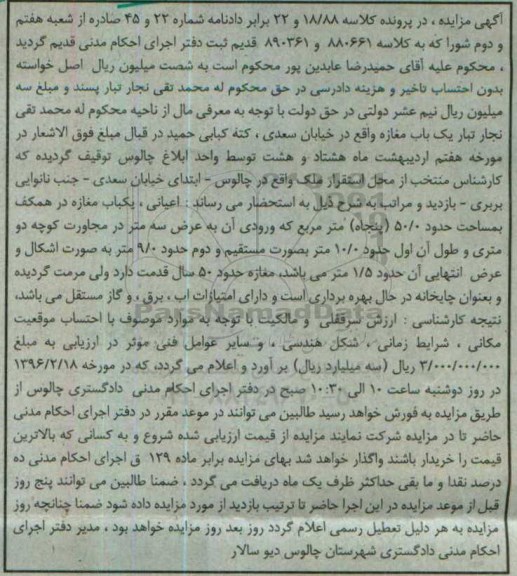 آگهی مزایده ، در پرونده کلاسه ۱۸/۸۸ و ۲۲ برابر دادنامه شماره ۲۳ و ۴۵ صادره از شعبه هفتم
و دوم شورا که به کلاسه ۸۸۰۶۶۱ و ۸۹۰۳۶۱ قدیم ثبت دفتر اجرای احکام مدنی قدیم گردید
، محکوم علیه آقای حمیدرضا عابدین پور محکوم است به شصت میلیون ریال اصل خواسته
بدون احتساب تاخیر و هزینه دادرسی در حق محکوم له محمد تقی نجار تبار پسند و مبلغ سه
میلیون ریال نیم عشر دولتی در حق دولت با توجه به معرفی مال از ناحیه محکوم له محمد تقی
نجار تبار یک باب مغازه واقع در خیابان سعدی ، کته کبابی حمید در قبال مبلغ فوق الاشعار در
مورخه هفتم اردیبهشت ماه هشتاد و هشت توسط واحد ابلاغ چالوس توقیف گردیده که
کارشناس منتخب از محل استقرار ملک واقع در چالوس - ابتدای خیابان سعدی - جنب نانوایی
بربری - بازدید و مراتب به شرح ذیل به استحضار می رساند : اعیانی ، یکباب مغازه در همکف
بمساحت حدود ۵۰/۰ (پنجاه) متر مربع که ورودی آن به عرض سه متر در مجاورت کوچه دو
متری و طول آن اول حدود ۱۰/۰ متر بصورت مستقیم و دوم حدود ۹/۰ متر به صورت اشکال و
عرض انتهایی آن حدود ۱/۵ متر می باشد، مغازه حدود ۵۰ سال قدمت دارد ولی مرمت گردیده
و بعنوان چایخانه در حال بهره برداری است و دارای امتیازات اب ، برق ، و گاز مستقل می باشد،
نتیجه کارشناسی : ارزش سرقفلی و مالکیت با توجه به موارد موصوف با احتساب موقعیت
مکانی ، شرایط زمانی ، شکل هندسی ، و سایر عوامل فنی موثر در ارزیابی به مبلغ
۳/۰۰۰/۰۰۰/۰۰۰ ریال (سه میلیارد ریال) بر آورد و اعلام می گردد، که در مورخه ۱۳۹۶/۲/۱۸
در روز دوشنبه ساعت ۱۰ الی ۱۰:۳۰ صبح در دفتر اجرای احکام مدنی دادگستری چالوس از
طریق مزایده به فورش خواهد رسید طالبین می توانند در موعد مقرر در دفتر اجرای احکام مدنی
حاضر تا در مزایده شرکت نمایند مزایده از قیمت ارزیابی شده شروع و به کسانی که بالاترین
قیمت را خریدار باشند واگذار خواهد شد بهای مزایده برابر ماده ۱۲۹ ق اجرای احکام مدنی ده
درصد نقدا و ما بقی حداکثر ظرف یک ماه دریافت می گردد ، ضمنا طالبین می توانند پنج روز
قبل از موعد مزایده در این اجرا حاضر تا ترتیب بازدید از مورد مزایده داده شود ضمنا چنانچه روز
مزایده به هر دلیل تعطیل رسمی اعلام گردد روز بعد روز مزایده خواهد بود ، مدیر دفتر اجرای
احکام مدنی دادگستری شهرستان چالوس دیو سالار
ParsNamadData